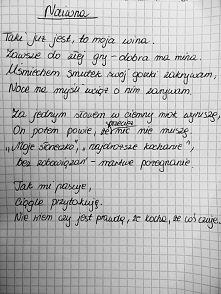 Naiwna
Taki już jest, to moja wina.
Zawsze do złej gry - dobra ma mina.
Uśmiechem smutek swój gorzki zakrywam,
Noce na myśli wciąż o nim zarywam.
Za jednym słowem w ciemny mrok wyruszę,
On potem powie, że przecież nic nie muszę.
"Moje słoneczko", "najdroższe kochanie",
bez zobowiązań - martwe pożegnanie.
Jak mu pasuje,
ciągle przytakuję.
Nie wiem czy jest prawdą, że kocha, że coś czuje.